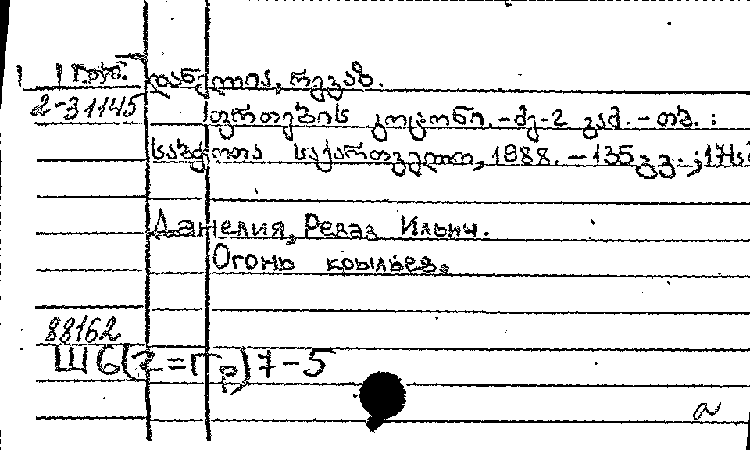 1 1 груп. დანელია, რევაზ.
2-31145 ფრთების კოცონი.-მე-2 გამ.-თბ.:
საბჭოთა საქართველო, 1988.-135გვ.;17სმ
Данелия, Реваз Ильич.
Огонь крыльев.
88162
Ш6(2=Гр)7-5
а